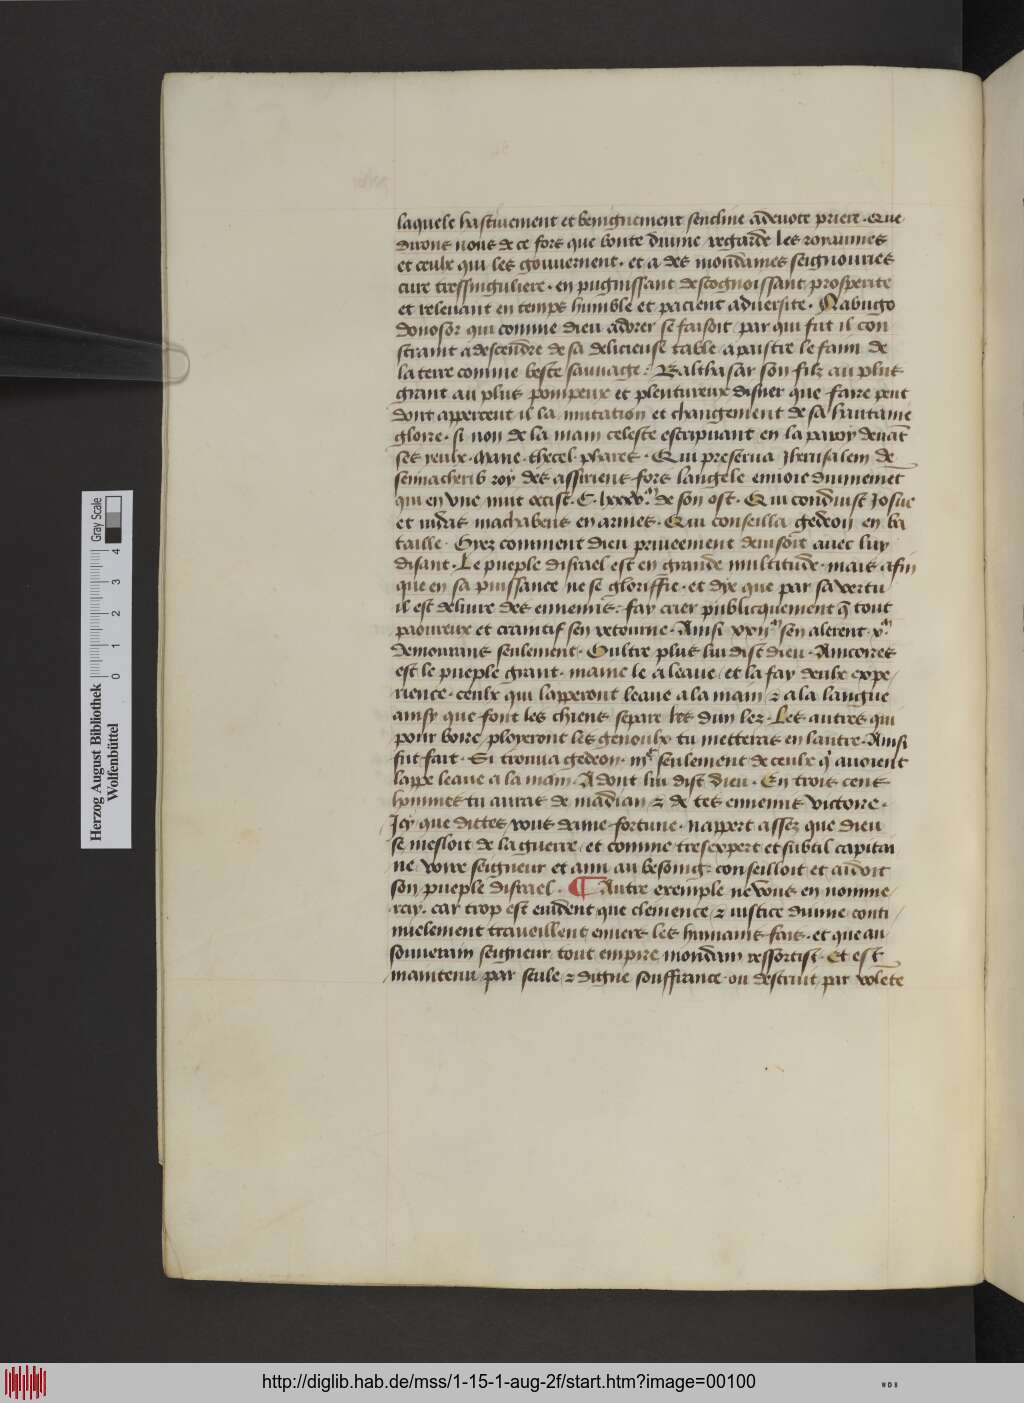 laquele hastiuement et benignement sencline a deuote priere. Que
dirons nous de ce fors que bonte diuine regarde les royaumes
et ceulx qui les gouuernent. et a des mondaines seignouries
cure tressinguliere. en pugnissant descognoissant prosperite
et releuant en temps humble et pacient aduersite. Nabugo
donosor qui comme dieu adorer se faisoit par qui fut il con
straint a descendre de sa delicieuse table a paistre le fain de
la terre comme beste sauuage: Balthasar son filz au plus
grant au plus pompeux et plentureux disner que faire peut
dont apperceut il la mutation et changement de sa haultaine
gloire. si non de la main celeste escripuant en la paroy deuāt
ses yeulx. Mane. thecel. phares. Qui preserua Jherusalem de
sennacherib roy des assiriens fors langele enuoie diuinemēt
qui en vne nuit occist. C. lxxxv.m de son ost. Qui conduist Josue
et iudas machabeus en armes. Qui conseilla gedeon en ba
taille. Oyez comment dieu priueement deuisoit auec luy
disant. Le pueple disrael est en grande multitude. mais afin
que en sa puissance ne se gloriffie. et dye que par sa vertu
il est deliure des ennemis: fay crier publicquement q̄ tout
paoureux et craintif sen retourne. Ainsi xxii.m sen alerent. x.m
demourans seulement. Oultre plus lui dist dieu. Ancores
est le pueple grant. maine le a leaue / et la fay deulx expe/
rience. ceulx qui lapperont leaue a la main et a la langue
ainsy que font les chiens separe les dun lez. Les autres qui
pour boire ployeront les genoulx tu metteras en lautre. Ainsi
fut fait. Si trouua gedeon. iiic seulement de ceulx q' auoient
lappe leaue a la main. Adont lui dist dieu. En trois cens
hommes tu auras de madian et de tes ennemis victoire.
Icy que dictes vous dame fortune. nappert assez que dieu
se mesloit de la guerre / et comme tresexpert et subtil capitai
ne voire seigneur et ami au besoing: conseilloit et aidoit
son pueple disrael. ¶ Autre exemple ne vous en nomme/
ray. car trop est euident que clemence et iustice diuine conti/
nuelement traueillent enuers les humains fais. et que au
souuerain seigneur tout empire mondain ressortist. Et est
maintenu par seule et digne souffrance ou destruit par volēte
Herzog August Bibliothek
Wolfenbüttel
0 1 2 3 4
Gray Scale
http://diglib.hab.de/mss/1-15-1-aug-2f/start.htm?image=00100